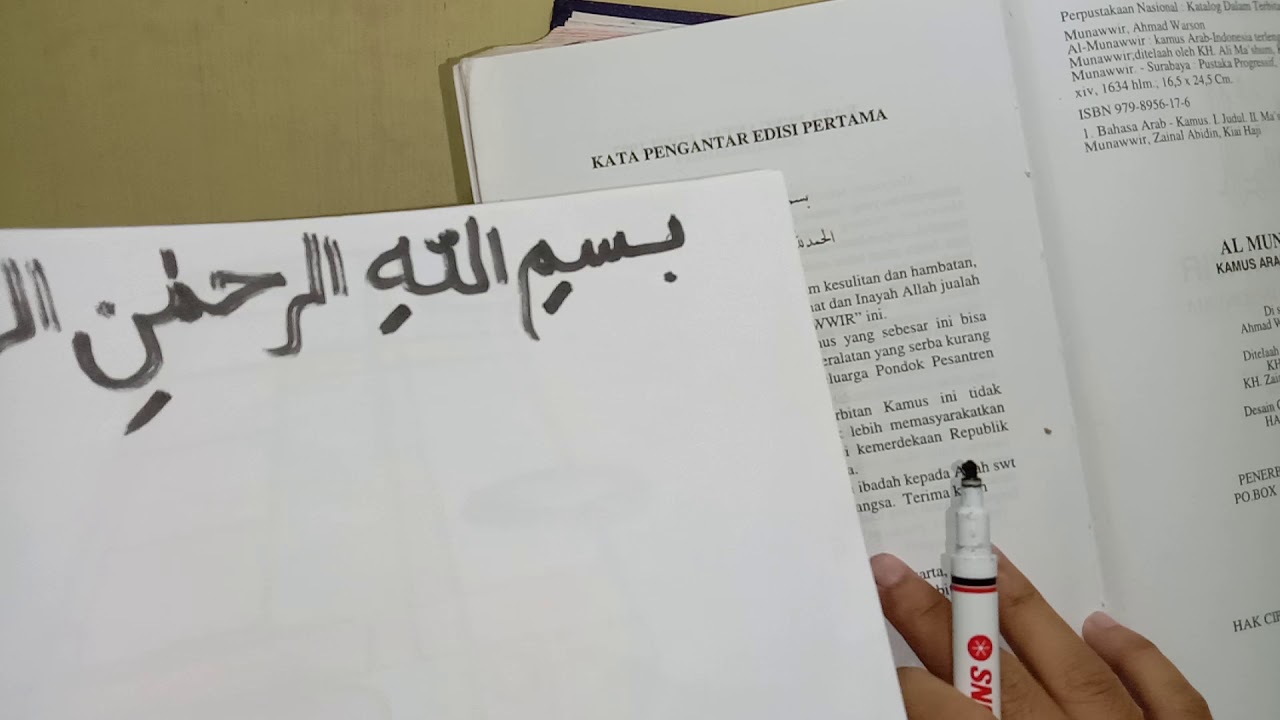 بسيم الله الرحمن الر
KATA PENGANTAR EDISI PERTAMA
بسـ
الحمد لله
m kesulitan dan hambatan,
at dan Inayah Allah jualah
WWIR" ini.
us yang sebesar ini bisa
eralatan yang serba kurang
luarga Pondok Pesantren
rbitan Kamus ini tidak
lebih memasyarakatkan
i kemerdekaan Republik
a.
ibadah kepada Allah swt
angsa. Terima
arta,
bi
Perpustakaan Nasional : Katalog Dalam Terbita
Munawwir, Ahmad Warson
Al-Munawwir : kamus Arab-Indonesia terleng
Munawwir;ditelaah oleh KH. Ali Ma'shum,
Munawwir. - Surabaya : Pustaka Progressif,
xiv, 1634 hlm., 16,5 x 24,5 Cm.
ISBN 979-8956-17-6
1. Bahasa Arab - Kamus. I. Judul. II. Ma's
Munawwir, Zainal Abidin, Kiai Haji
AL MUN
KAMUS ARA
Di s
Ahmad W
Ditelaah
KH
KH. Zai
Desain C
HA
PENERB
PO.BOX
HAK CIP
SN